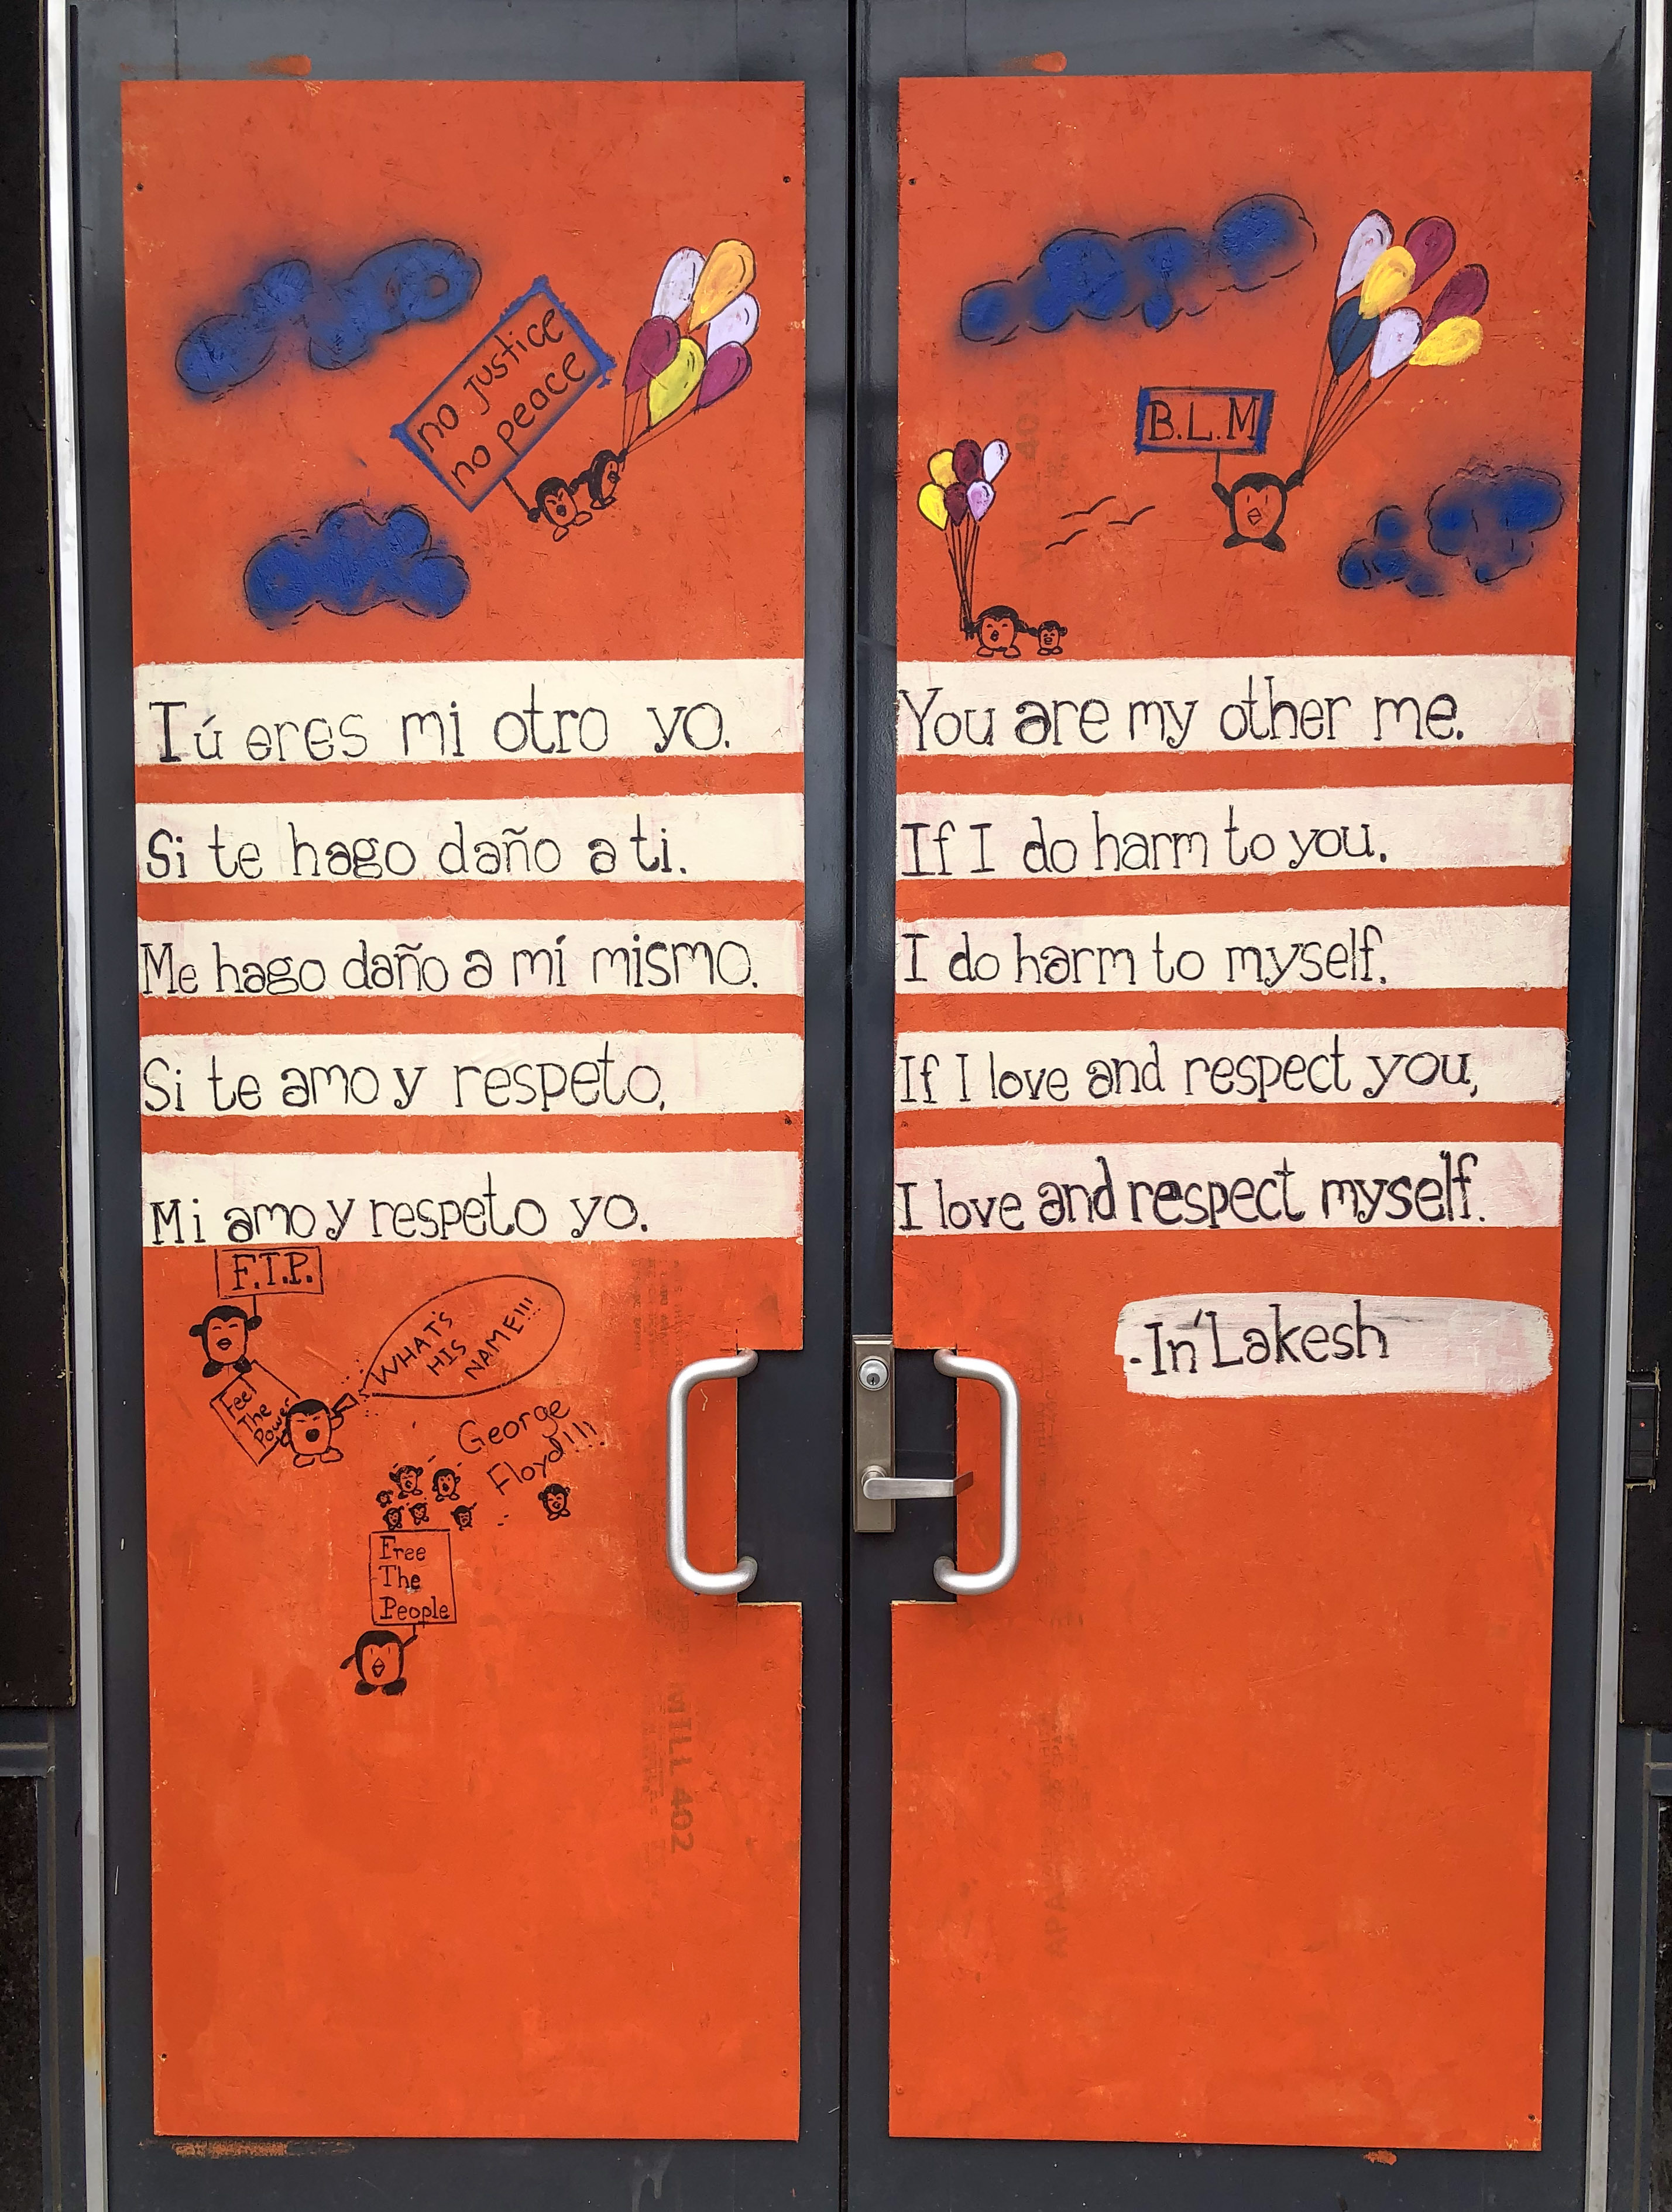 no justice
no peace
Tú eres mi otro yo.
Si te hago daño a ti.
Me hago daño a mí mismo.
Si te amo y respeto,
Mi amo y respeto yo.
F.T.P.
WHAT'S
HIS
NAME!!!
Feel
The
Power
George
Floyd!!!
Free
The
People
MILL 402
B.L.M
You are my other me.
If I do harm to you.
I do harm to myself.
If I love and respect you,
I love and respect myself.
-In'Lakesh